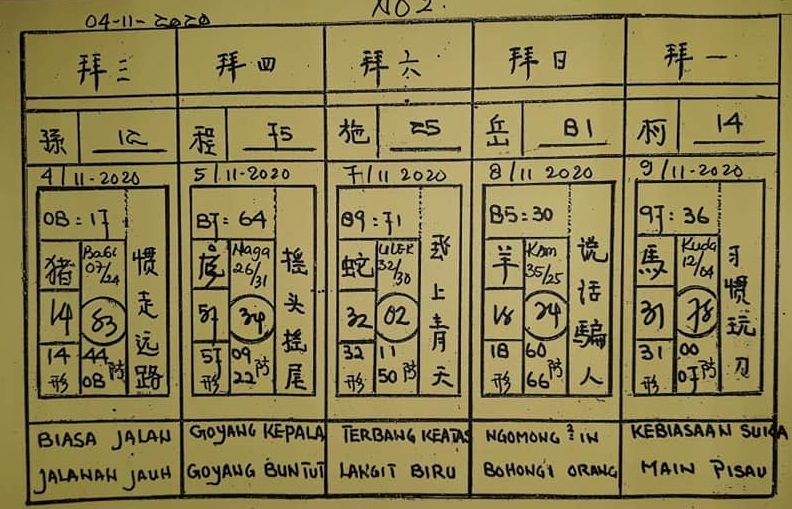 NO 2.
04-11-2020
拜三 拜四 拜六 拜日 拜一
孫 12 程 75 施 25 岳 81 柯 14
4/11-2020 5/11-2020 7/11 2020 8/11 2020 9/11-2020
08:17
猪 Babi 07/24
14 83
14 44
形 08 防
惯走远路
87:64
Naga 26/31
57 34
57 09
形 22 防
摇头摇尾
89:71
蛇 ULER 32/30
32 02
32 11
形 50 防
上青天
85:30
羊 Kam 35/25
18 24
18 60
形 66 防
说话騙人
97:36
馬 Kuda 12/04
31 78
31 00
形 07 防
习惯玩刀
BIASA JALAN
JALANAN JAUH
GOYANG KEPALA
GOYANG BUNTUT
TERBANG KEATAS
LANGIT BIRU
NGOMONG ² IN
BOHONGI ORANG
KEBIASAAN SUKA
MAIN PISAU